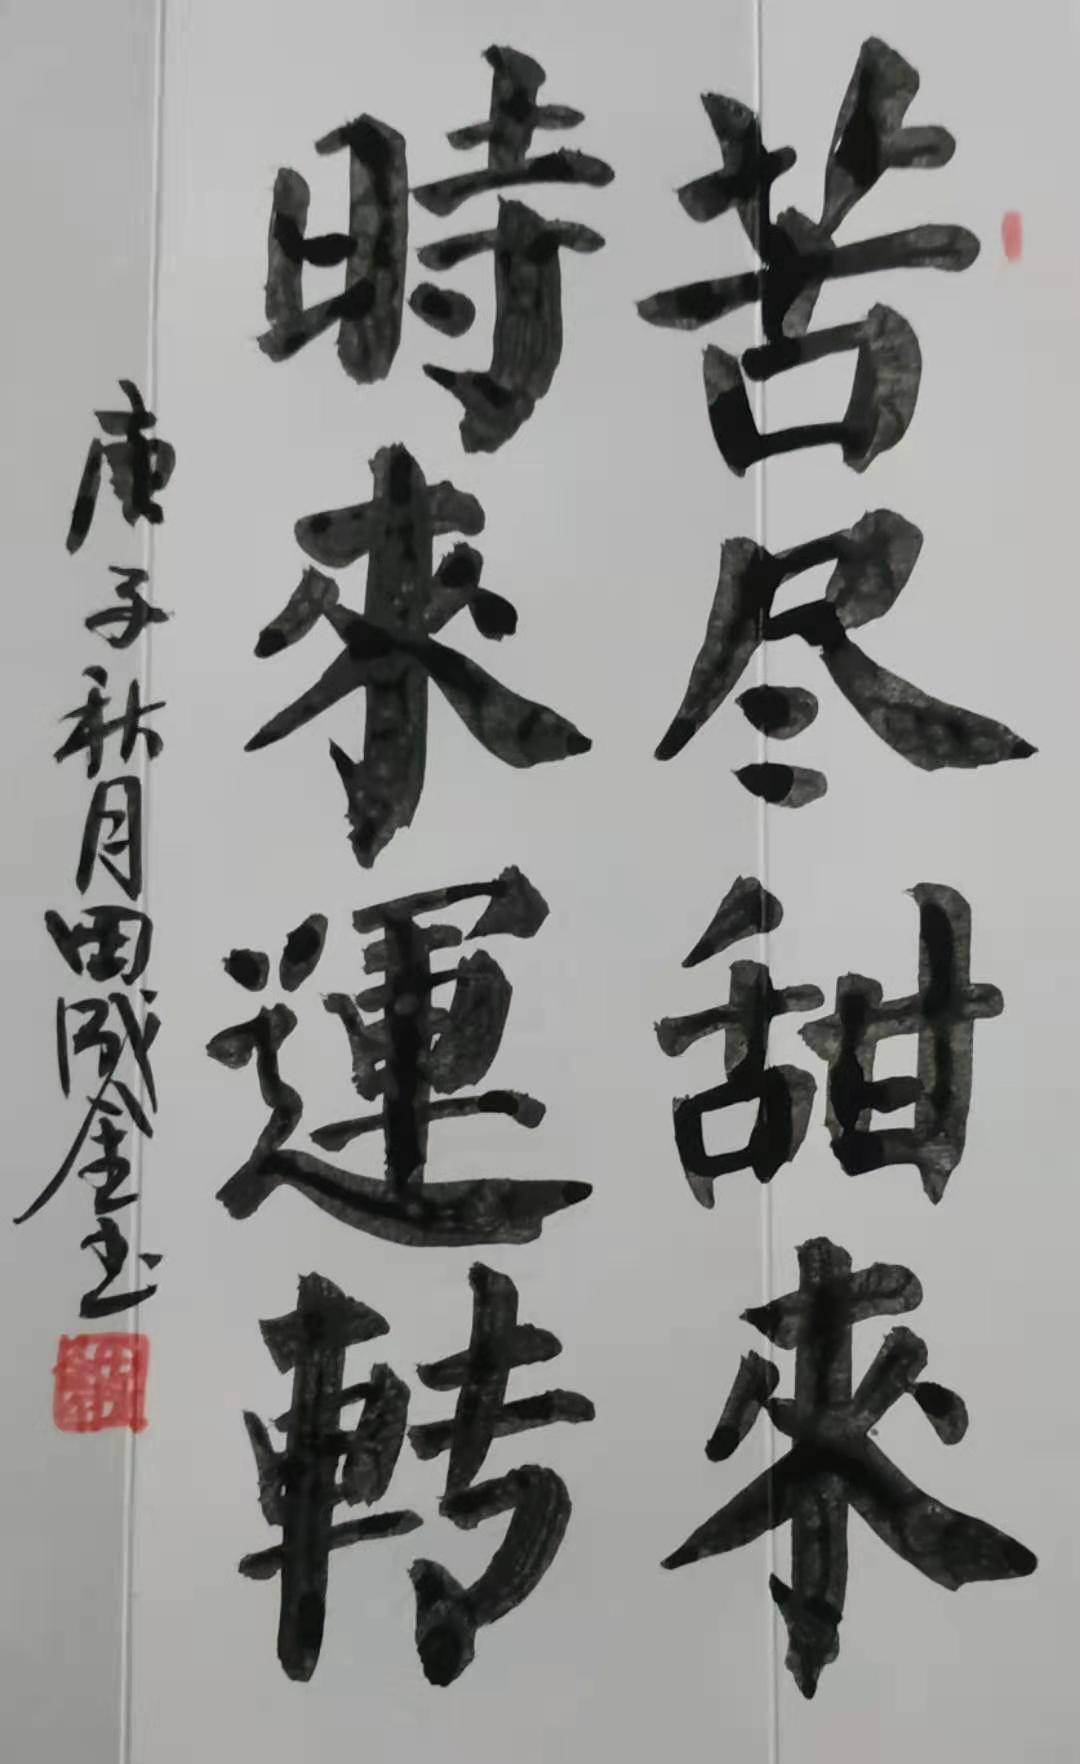 苦尽甜來
時來運轉
庚子秋月田成金书